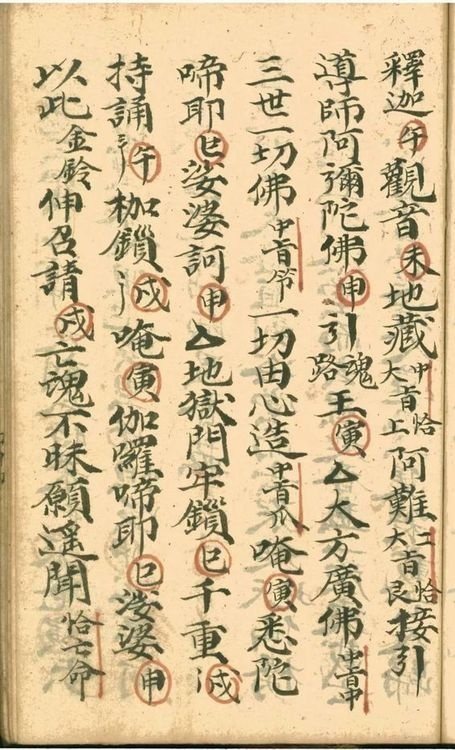 釋迦午觀音未地藏中恰大音上阿難二恰大音艮接引
導師阿彌陀佛申引魂路王寅△大方廣佛中音中
三世一切佛中音爷一切由心造中音爪唵寅悉陀
啼耶巳娑婆訶申△地獄門牢鎖巳千重戌
持誦午枷鎖戌唵寅伽羅啼耶巳娑婆申
以此金鈴伸召請戌亡魂不昧願遥聞恰亡命